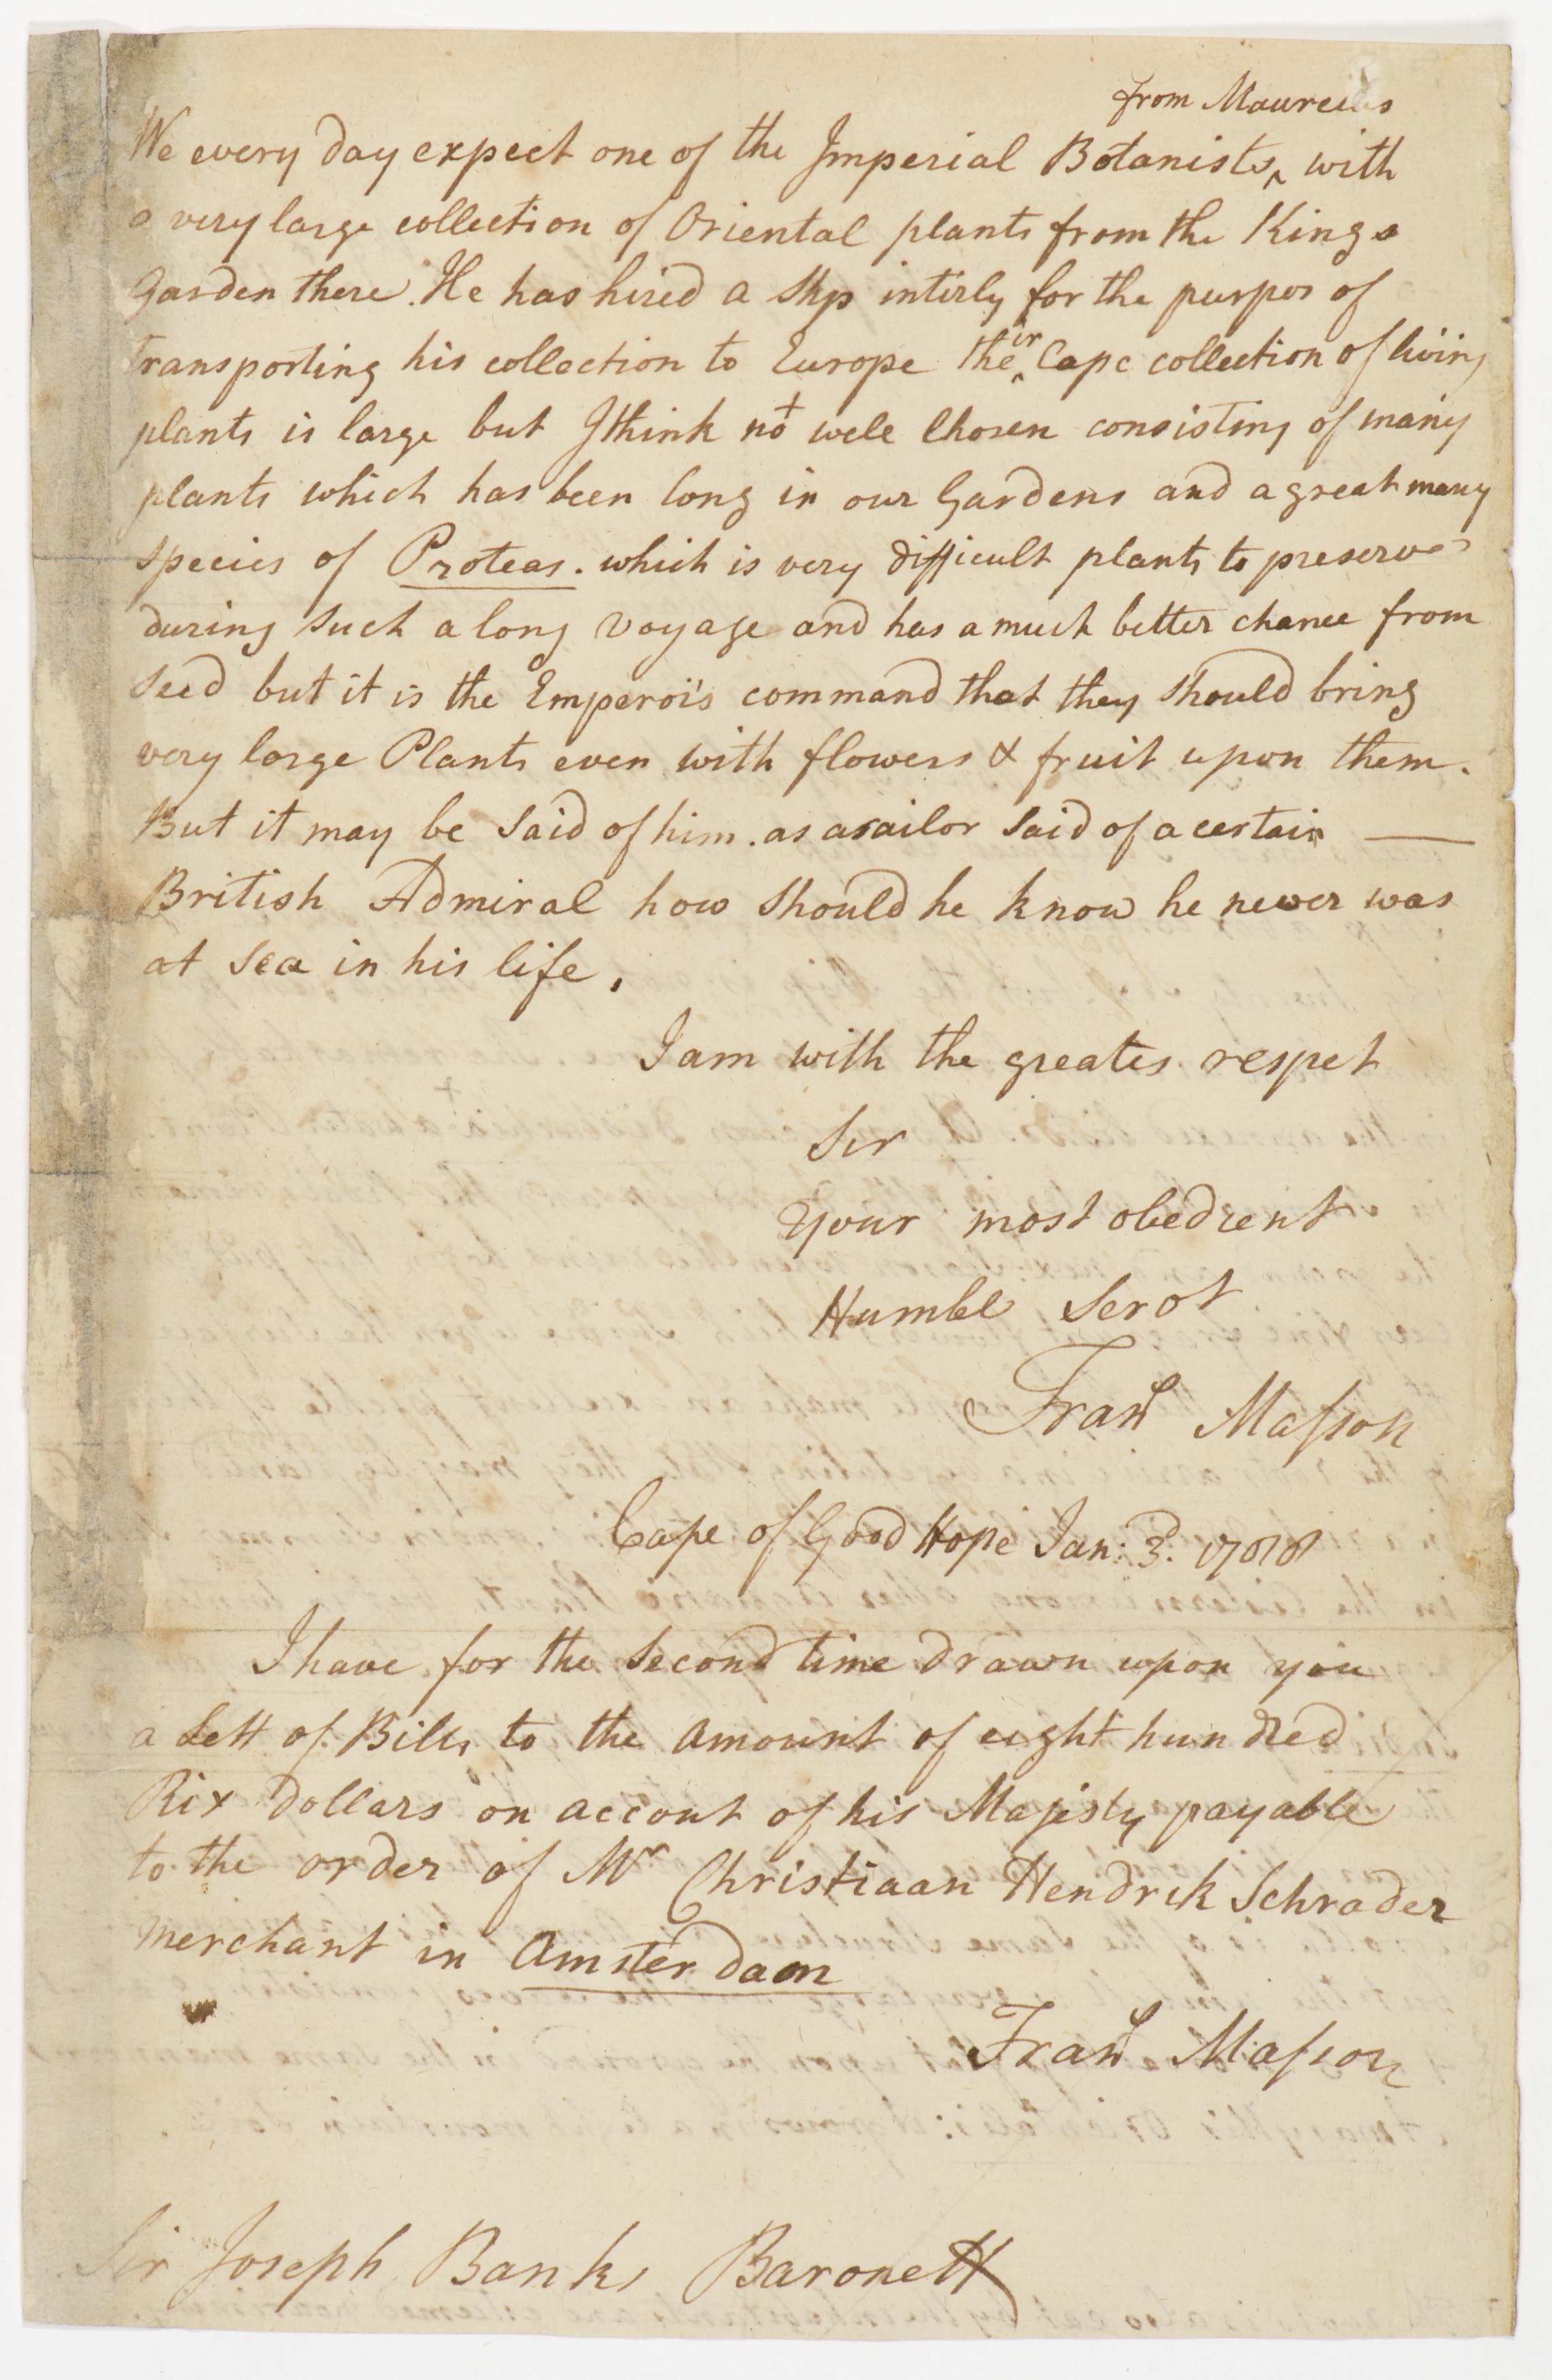 from Maureius
We every day expect one of the Imperial Botanists ‸ with
a very large collection of Oriental plants from the Kings
Garden there. He has hired a Ship intirly for the purpos of
transporting his collection to Europe their Cape collection of living
plants is large but I think not wele Chosen consisting of many
plants which has been long in our Gardens and a great many
species of Proteas. which is very difficult plants to preserve
during such a long Voyage and has a much better chance from
Seed but it is the Emperor's command that they Should bring
very large Plants even with flowers & fruit upon them.
But it may be Said of him. as a sailor Said of a certain —
British Admiral how Should he know he never was
at Sea in his life.
I am with the greates respet
Sir
Your most obedient
Humble Servt
Frans Masson
Cape of Good Hope Jan: 3. 1788
I have for the Second time drawn upon you
a Sett of Bills to the amount of eight hundred
Rix Dollars on accout of his Majesty payable
to the order of Mr Christiaan Hendrik Schrader
merchant in Amsterdam
Frans Masson
Sir Joseph Banks Baronett